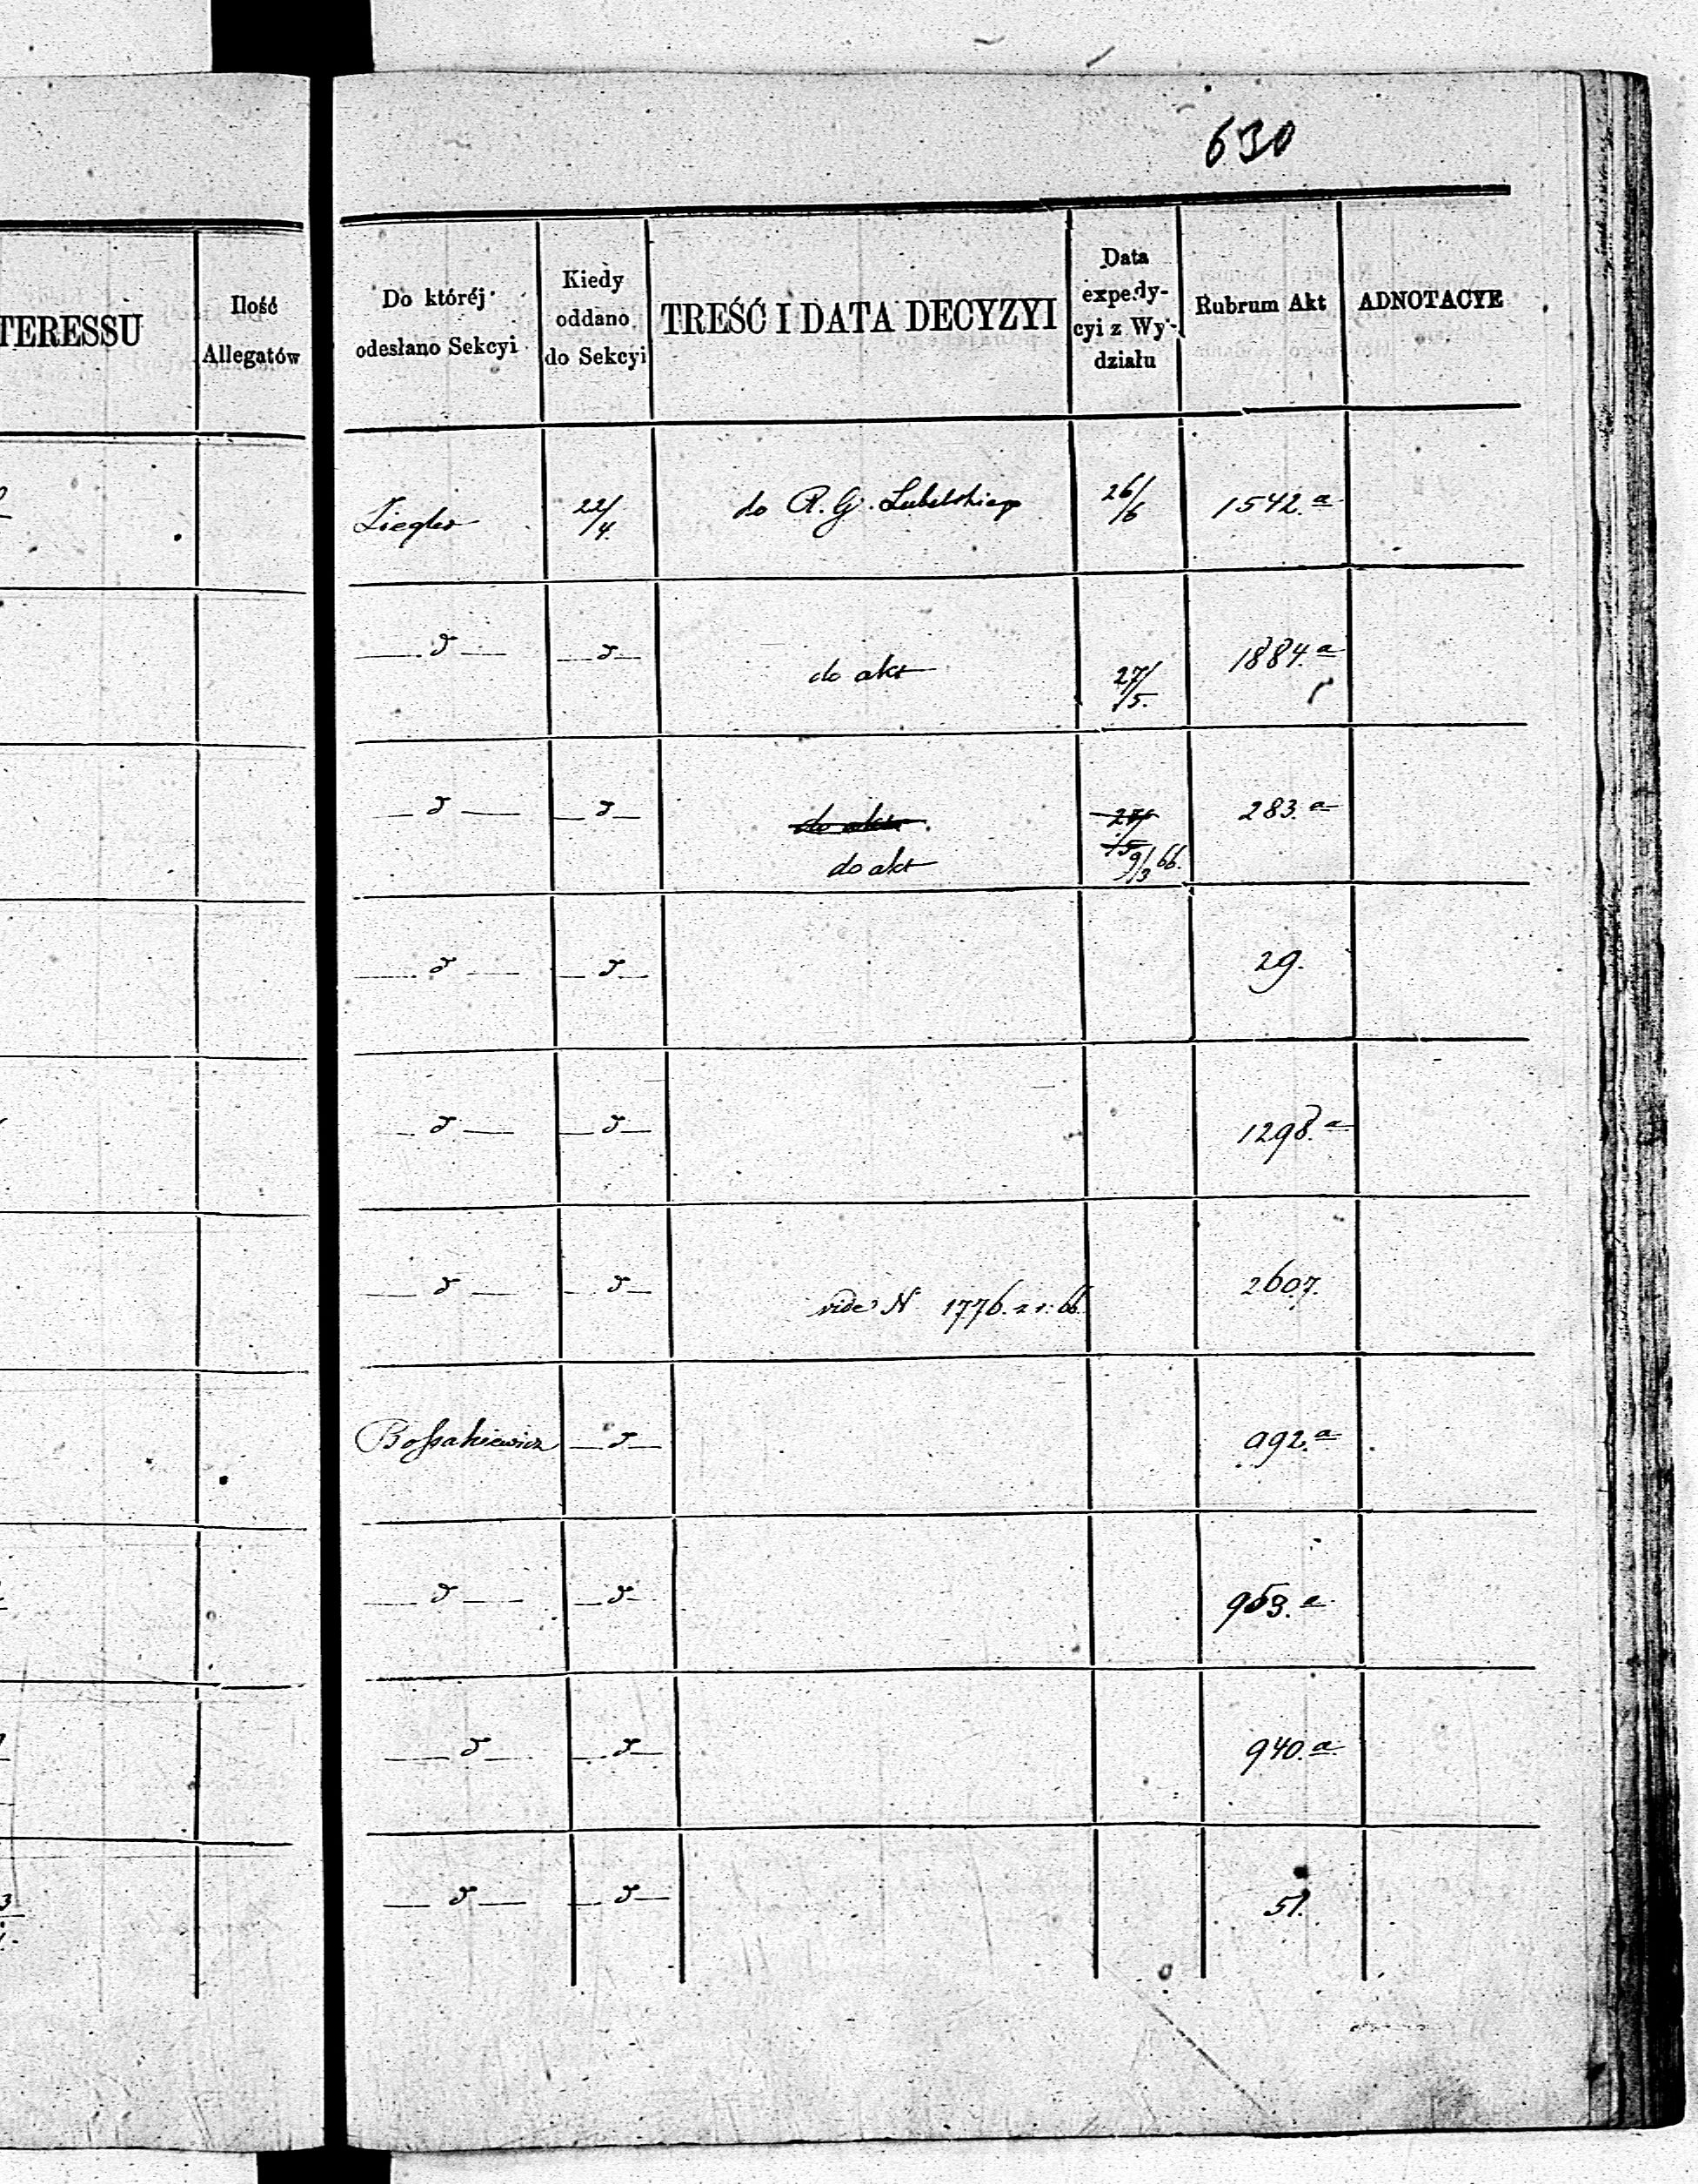 630
TERESSU
Ilość
Allegatów
Do któréj
odesłano Sekcyi
Kiedy
oddano
do Sekcyi
TREŚĆ I DATA DECYZYI
Data
expedy-
cyi z Wy-
działu
Rubrum Akt
ADNOTACYE
Ziegler 22/4. do R. G. Lubelskiego 26/6 1542.a
— d — — d — do akt 27/5. 1884.a
— d — — d — do akt 27/5 283.a
do akt 9/3 66.
— d — — d — 29.
— d — — d — 1298.a
— d — — d — vide N 1776. 21. 66. 2607.
Bossakiewicz — d — 992.a
— d — — d — 953.a
— d — — d — 940.a
— d — — d — 51.